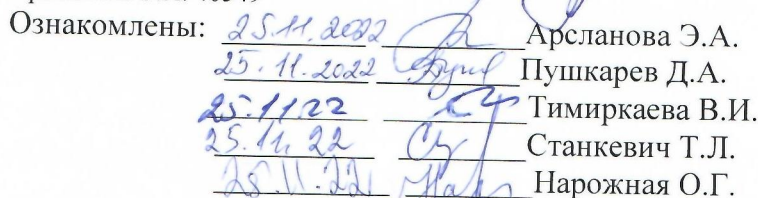 Ознакомлены: 25.11.2022 Арсланова Э.А.
25.11.2022 Пушкарев Д.А.
25.11.22 Тимиркаева В.И.
25.11.22 Станкевич Т.Л.
25.11.22 Нарожная О.Г.